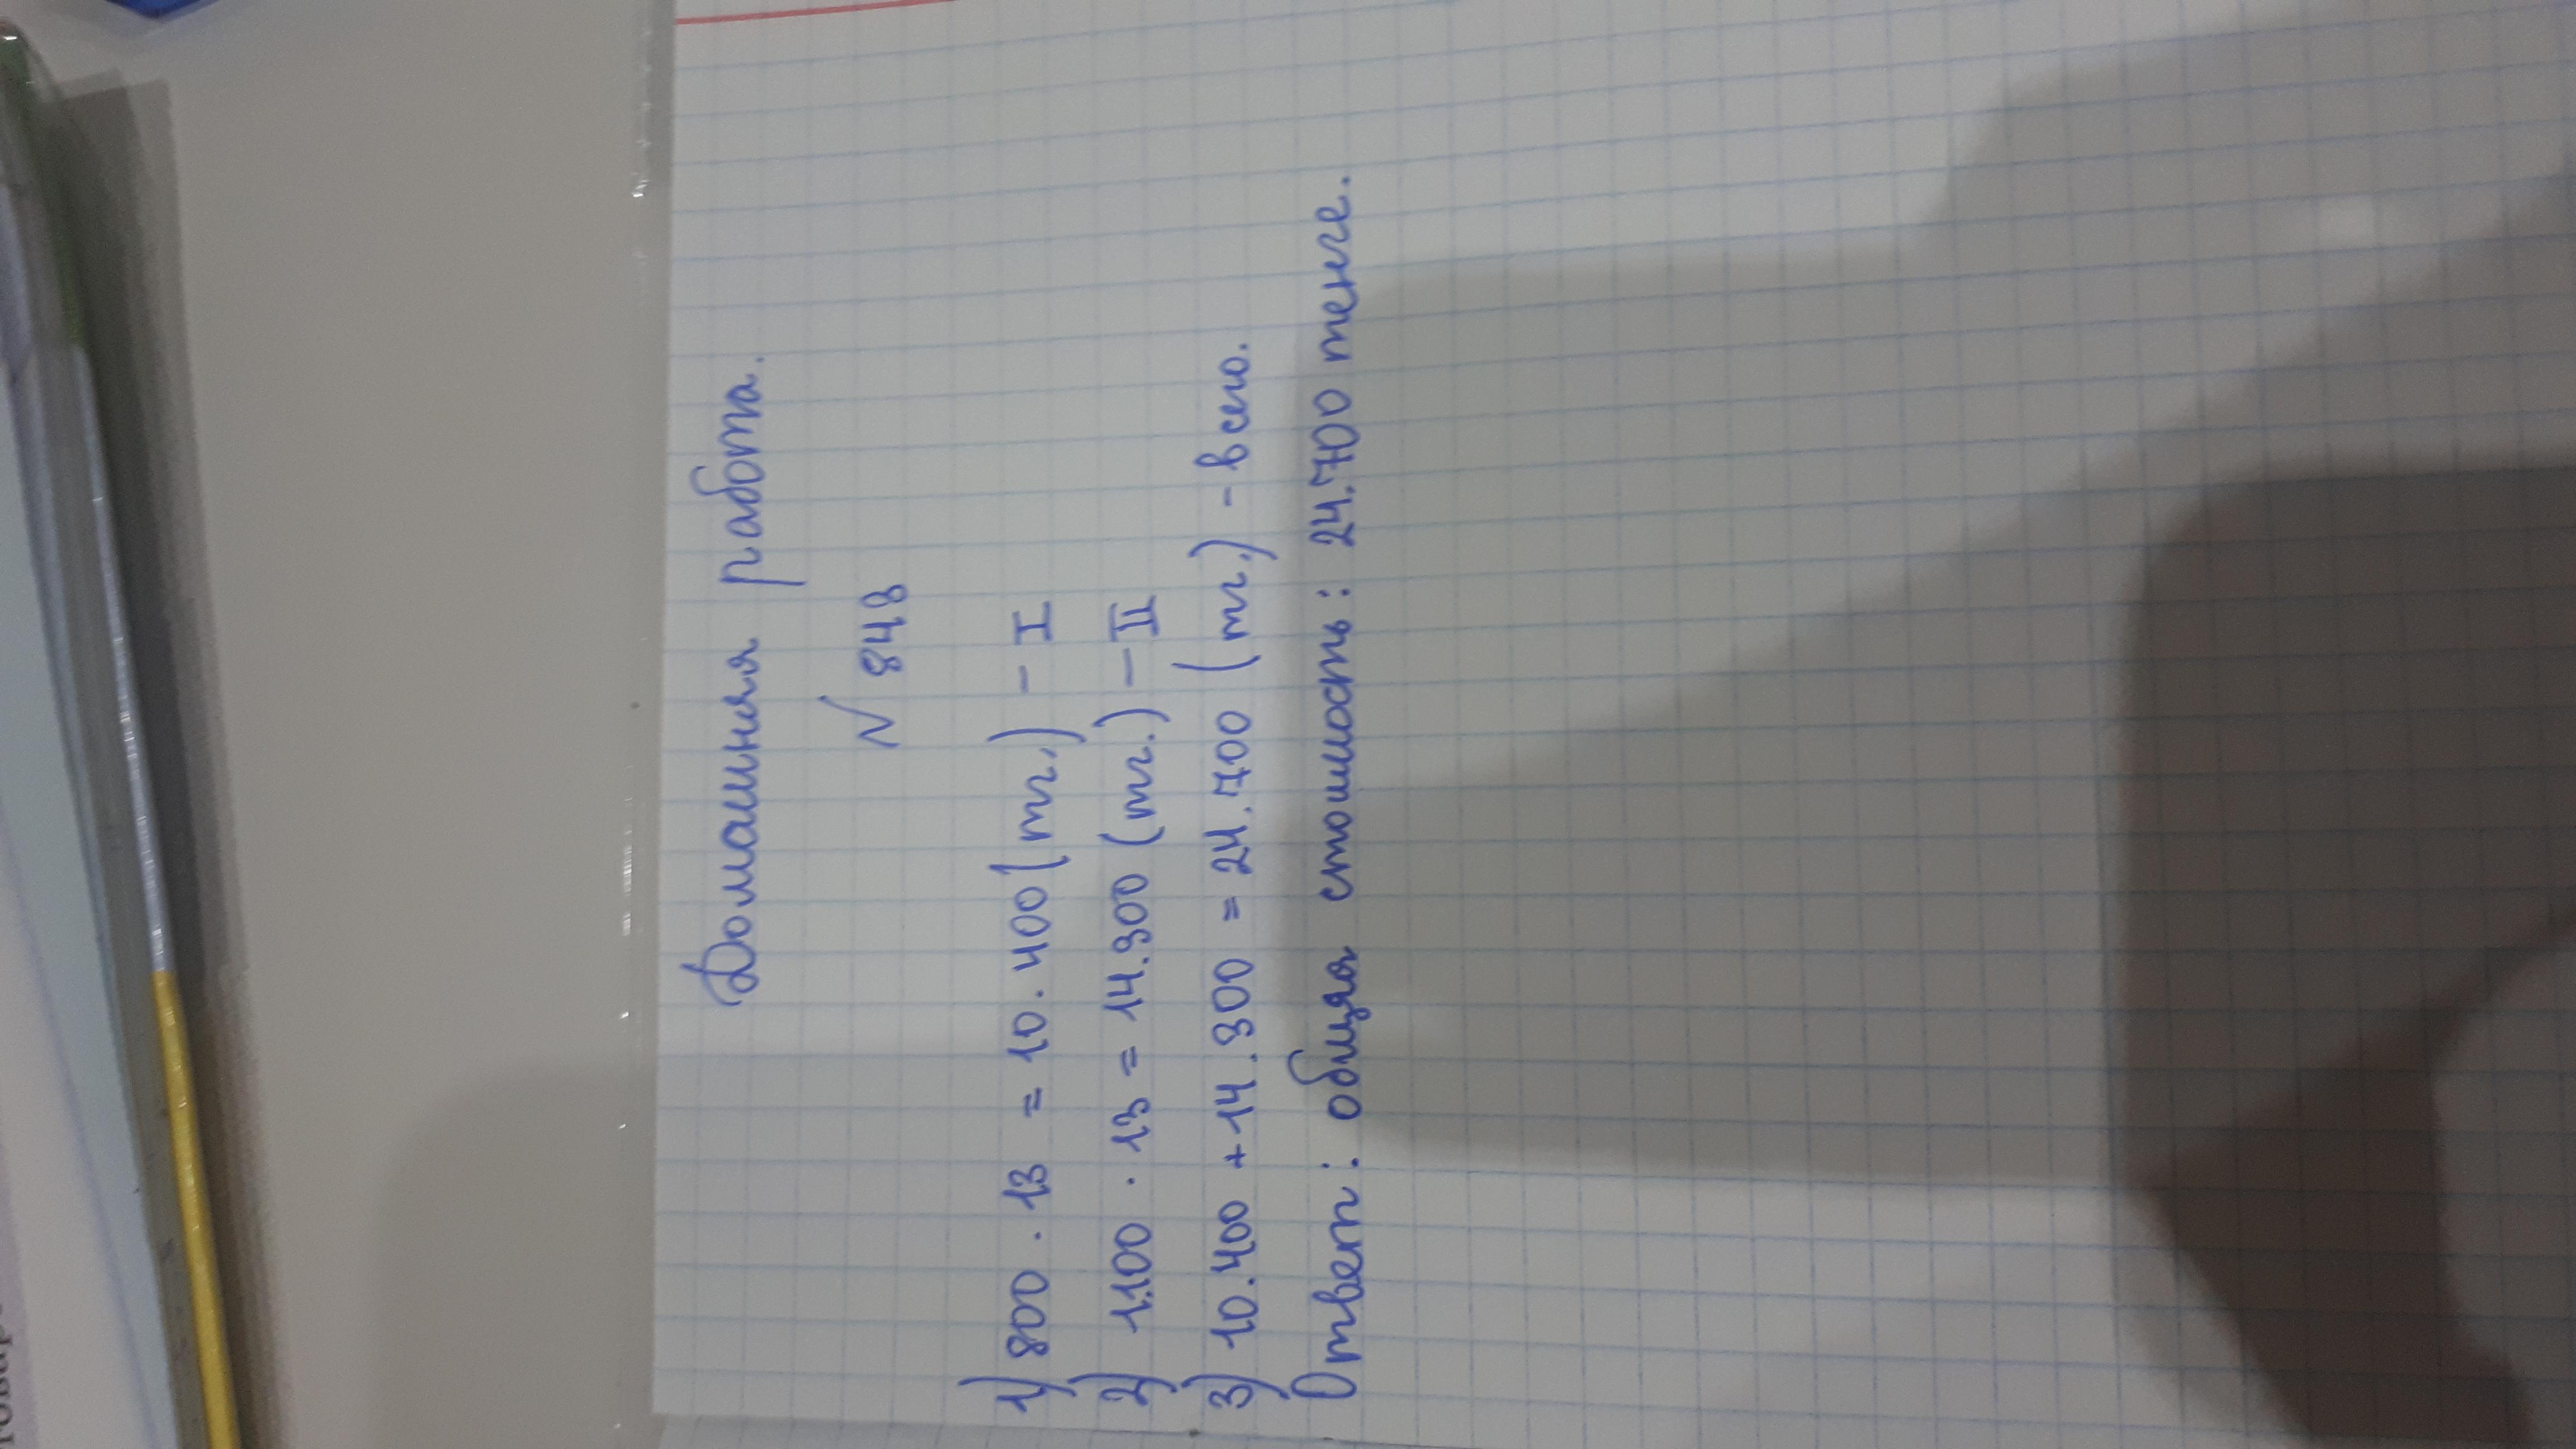 Домашняя работа.
№ 848
1) 800 · 13 = 10.400 (тг.) – I
2) 1.100 · 13 = 14.300 (тг.) – II
3) 10.400 + 14.300 = 24.700 (тг.) – всего.
Ответ: общая стоимость: 24.700 тенге.